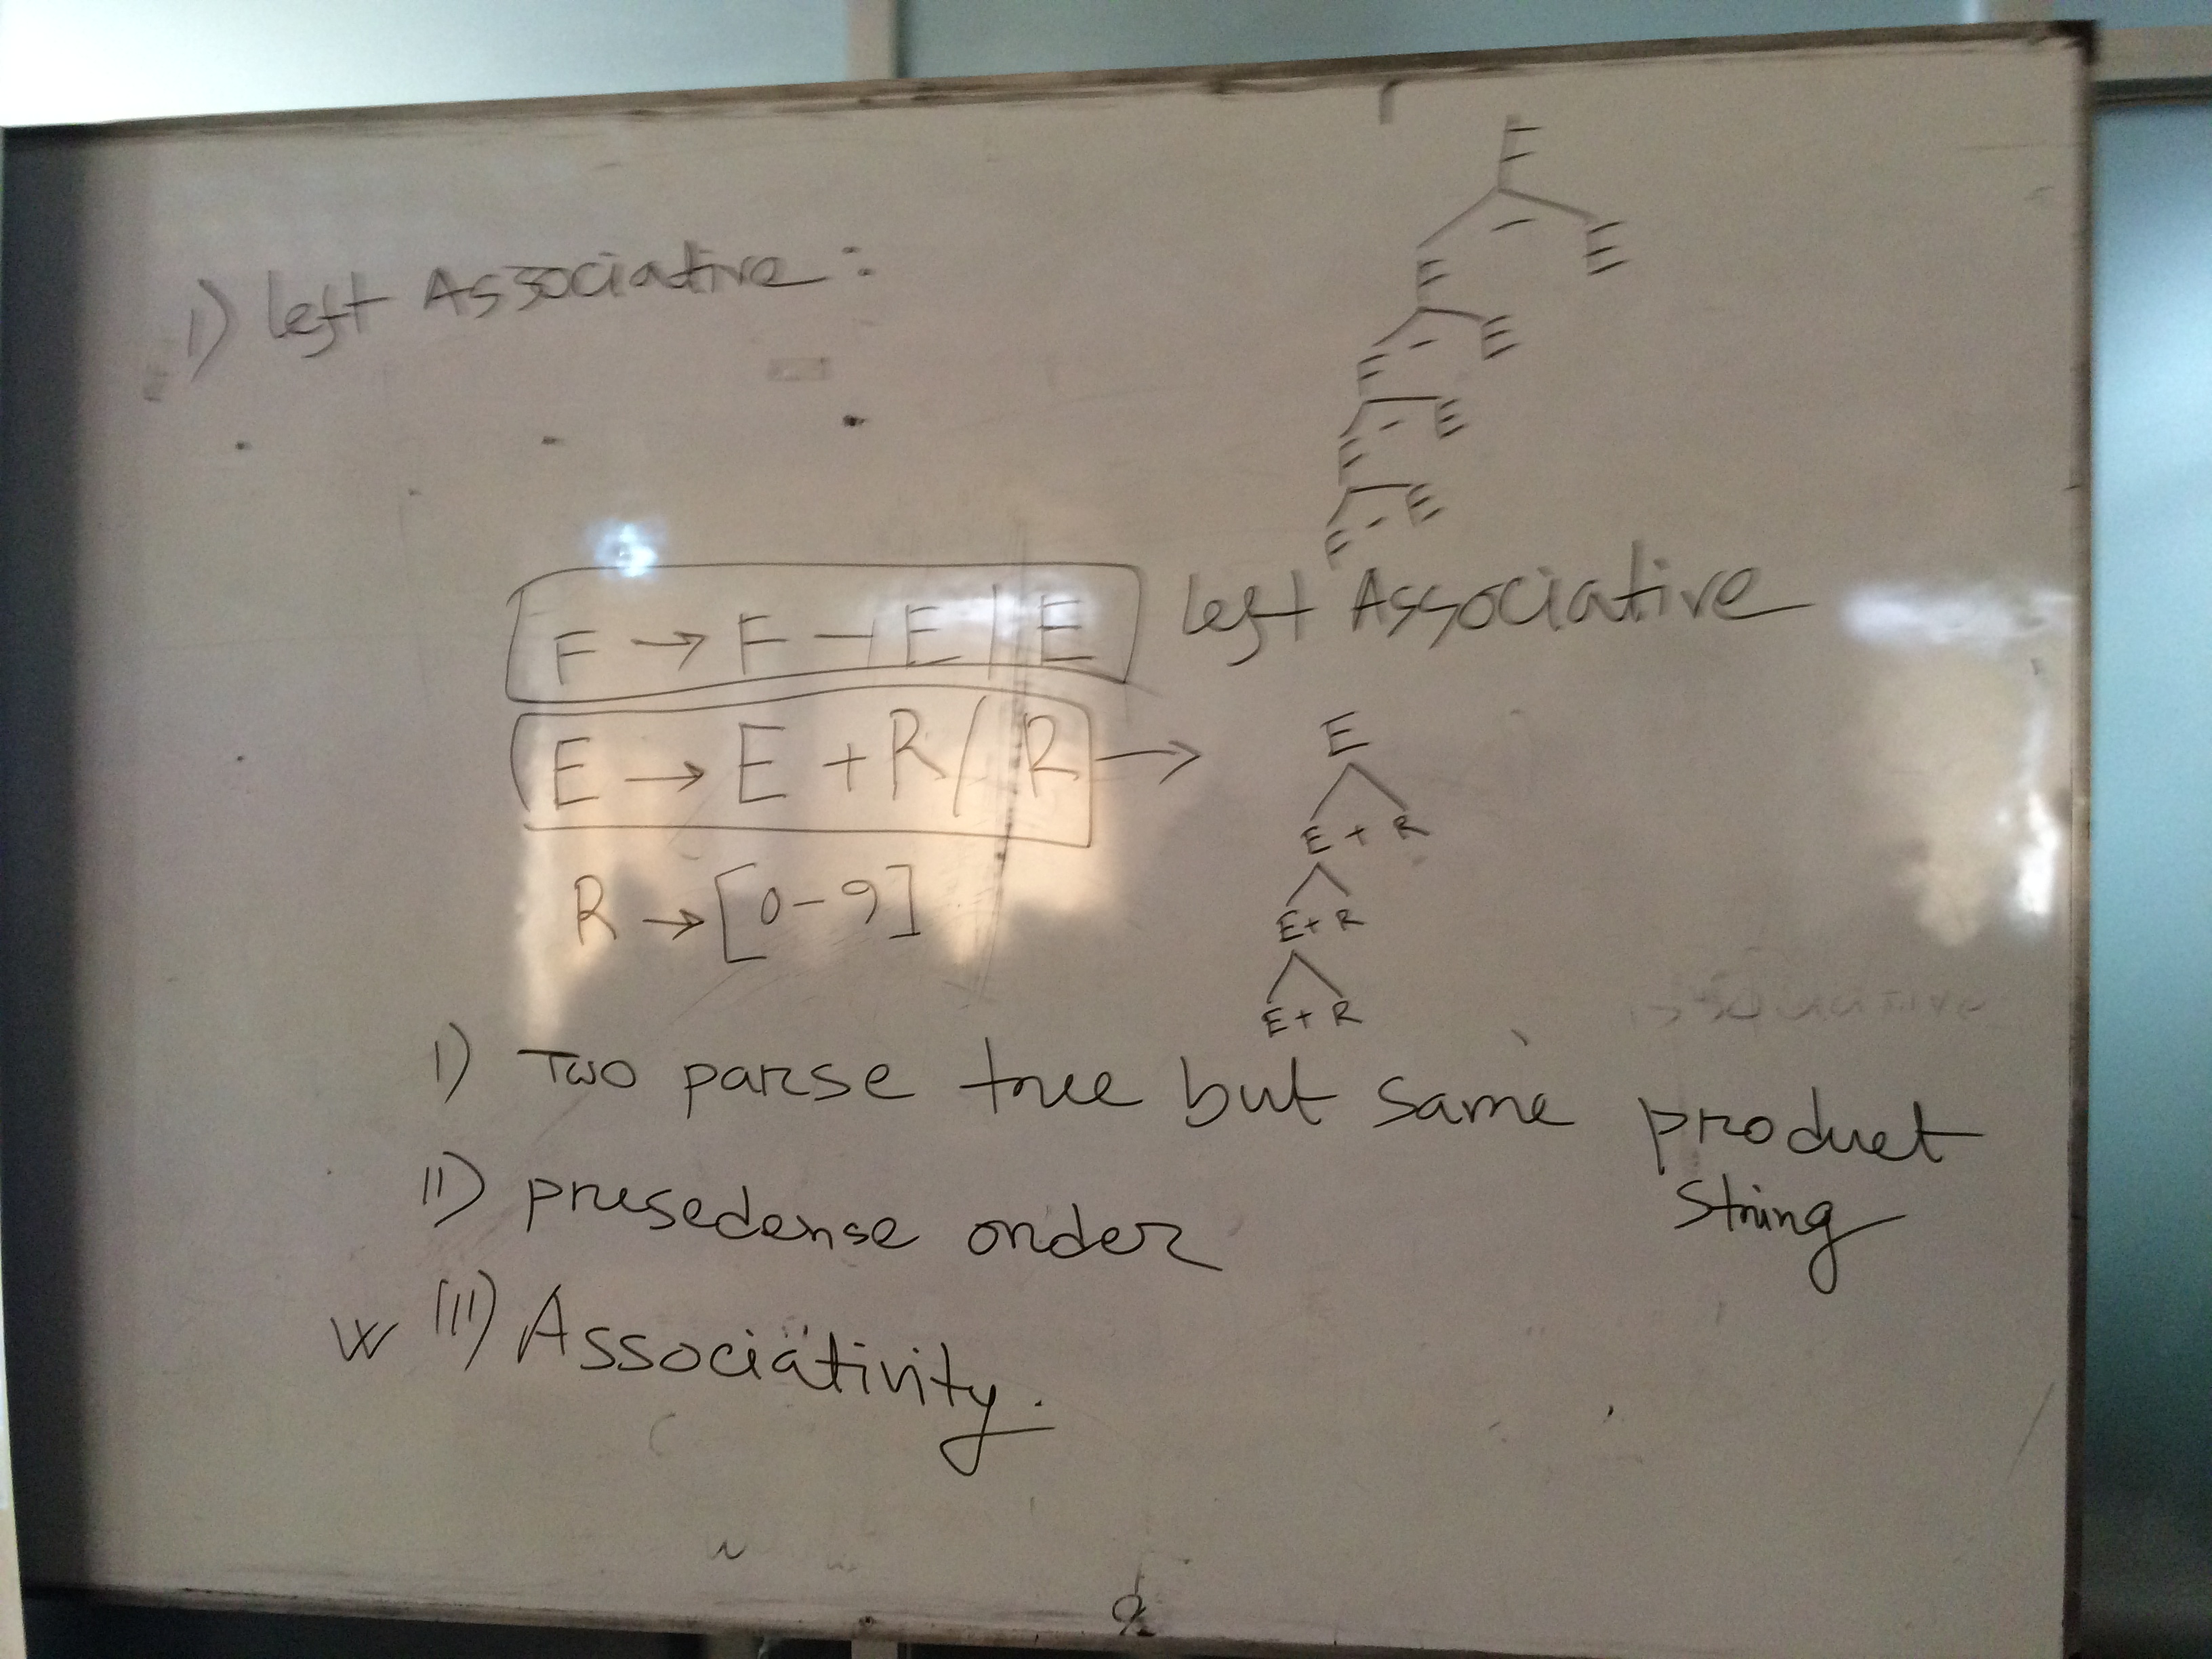 1) left Associative :
F
F - E
F - E
F - E
F - E
F → F - E | E left Associative
E → E + R / R →
E
E + R
E + R
E + R
R → [0-9]
1) Two parse tree but same product
string
11) presedense order
w 111) Associativity.